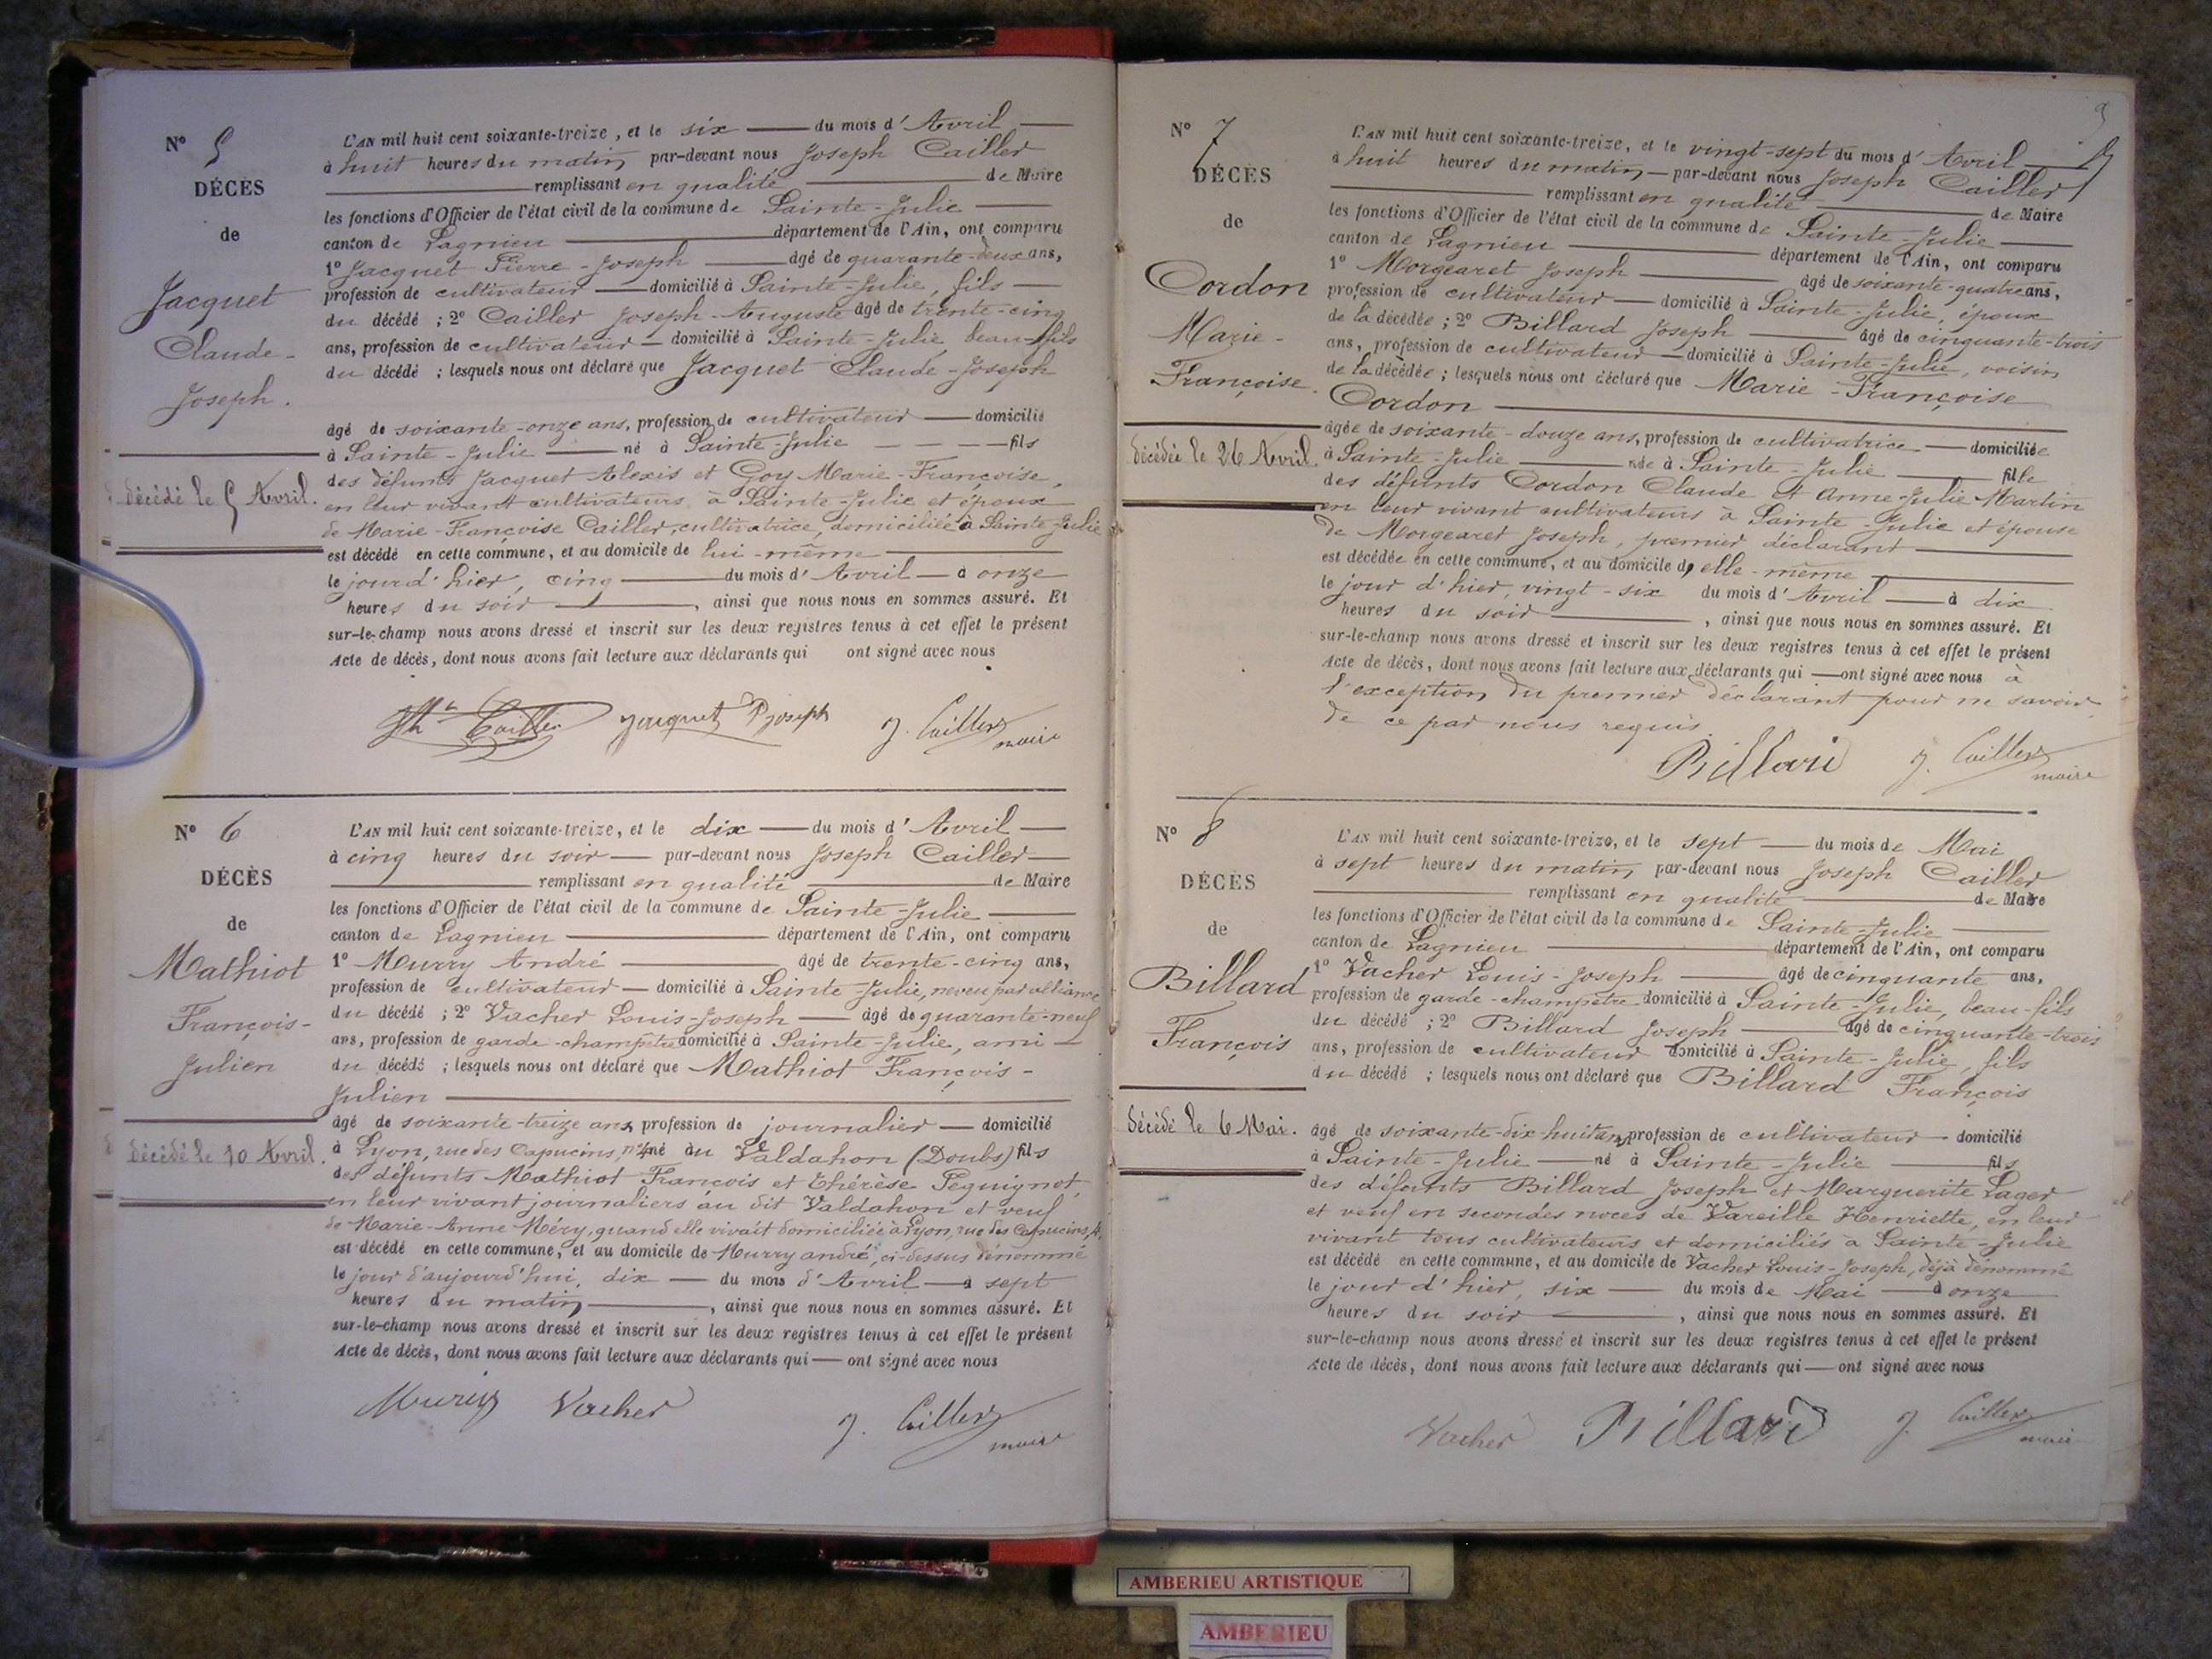 N° 5
DÉCÈS
de
Jacquet
Claude-
Joseph.
décédé le 5 Avril.
L'AN mil huit cent soixante-treize, et le six du mois d'Avril
à huit heures du matin, par-devant nous Joseph Cailler
remplissant en qualité de Maire
les fonctions d'Officier de l'état civil de la commune de Sainte-Julie
canton de Lagnieu département de l'Ain, ont comparu
1° Jacquet Pierre-Joseph âgé de quarante-deux ans,
profession de cultivateur domicilié à Sainte-Julie, fils
du décédé ; 2° Cailler Joseph-Auguste âgé de trente-cinq
ans, profession de cultivateur domicilié à Sainte-Julie, beau-fils
du décédé ; lesquels nous ont déclaré que Jacquet Claude-Joseph
âgé de soixante-onze ans, profession de cultivateur domicilié
à Sainte-Julie né à Sainte-Julie fils
des défunts Jacquet Alexis et Goy Marie-Françoise,
en leur vivant cultivateurs à Sainte-Julie et époux
de Marie-Françoise Cailler, cultivatrice, domiciliée à Sainte-Julie
est décédé en cette commune, et au domicile de lui-même
le jour d'hier, cinq du mois d'Avril à onze
heures du soir, ainsi que nous nous en sommes assuré. Et
sur-le-champ nous avons dressé et inscrit sur les deux registres tenus à cet effet le présent
Acte de décès, dont nous avons fait lecture aux déclarants qui ont signé avec nous
Jh Cailler Jacquet P Joseph J. Cailler
maire
N° 6
DÉCÈS
de
Mathiot
François-
Julien
décédé le 10 Avril.
L'AN mil huit cent soixante-treize, et le dix du mois d'Avril
à cinq heures du soir par-devant nous Joseph Cailler
remplissant en qualité de Maire
les fonctions d'Officier de l'état civil de la commune de Sainte-Julie
canton de Lagnieu département de l'Ain, ont comparu
1° Murry André âgé de trente-cinq ans,
profession de cultivateur domicilié à Sainte-Julie, neveu par alliance
du décédé ; 2° Vacher Louis-Joseph âgé de quarante-neuf
ans, profession de garde-champêtre domicilié à Sainte-Julie, ami
du décédé ; lesquels nous ont déclaré que Mathiot François-
Julien
âgé de soixante-treize ans, profession de journalier domicilié
à Lyon, rue des Capucins, n° 4 né au Valdahon (Doubs) fils
des défunts Mathiot François et Thérèse Peguignot,
en leur vivant journaliers au dit Valdahon et veuf
de Marie-Anne Méry, quand elle vivait domiciliée à Lyon, rue des Capucins, 4,
est décédé en cette commune, et au domicile de Murry andré, ci-dessus dénommé
le jour d'aujourd'hui, dix du mois d'Avril à sept
heures du matin, ainsi que nous nous en sommes assuré. Et
sur-le-champ nous avons dressé et inscrit sur les deux registres tenus à cet effet le présent
Acte de décès, dont nous avons fait lecture aux déclarants qui ont signé avec nous
Murry Vacher J. Cailler
maire
N° 7
DÉCÈS
de
Cordon
Marie-
Françoise.
décédée le 26 Avril.
L'AN mil huit cent soixante-treize, et le vingt-sept du mois d'Avril
à huit heures du matin par-devant nous Joseph Cailler
remplissant en qualité de Maire
les fonctions d'Officier de l'état civil de la commune de Sainte-Julie
canton de Lagnieu département de l'Ain, ont comparu
1° Morgearet Joseph âgé de soixante-quatre ans,
profession de cultivateur domicilié à Sainte-Julie, époux
de la décédée ; 2° Billard Joseph âgé de cinquante-trois
ans, profession de cultivateur domicilié à Sainte-Julie, voisin
de la décédée ; lesquels nous ont déclaré que Marie-Françoise
Cordon
âgée de soixante-douze ans, profession de cultivatrice domiciliée
à Sainte-Julie née à Sainte-Julie fille
des défunts Cordon Claude et Anne-Julie Martin
en leur vivant cultivateurs à Sainte-Julie et épouse
de Morgearet Joseph, premier déclarant
est décédée en cette commune, et au domicile d'elle-même
le jour d'hier, vingt-six du mois d'Avril à dix
heures du soir, ainsi que nous nous en sommes assuré. Et
sur-le-champ nous avons dressé et inscrit sur les deux registres tenus à cet effet le présent
Acte de décès, dont nous avons fait lecture aux déclarants qui ont signé avec nous à
l'exception du premier déclarant pour ne savoir
de ce par nous requis.
Billard J. Cailler
maire
N° 8
DÉCÈS
de
Billard
François
décédé le 6 Mai.
L'AN mil huit cent soixante-treize, et le sept du mois de Mai
à sept heures du matin, par-devant nous Joseph Cailler
remplissant en qualité de Maire
les fonctions d'Officier de l'état civil de la commune de Sainte-Julie
canton de Lagnieu département de l'Ain, ont comparu
1° Vacher Louis-Joseph âgé de cinquante ans,
profession de garde-champêtre domicilié à Sainte-Julie, beau-fils
du décédé ; 2° Billard Joseph âgé de cinquante-trois
ans, profession de cultivateur domicilié à Sainte-Julie, fils
du décédé ; lesquels nous ont déclaré que Billard François
âgé de soixante-dix-huit ans, profession de cultivateur domicilié
à Sainte-Julie né à Sainte-Julie fils
des défunts Billard Joseph et Marguerite Lager
et veuf en secondes noces de Vareille Henriette, en leur
vivant tous cultivateurs et domiciliés à Sainte-Julie
est décédé en cette commune, et au domicile de Vacher Louis-Joseph, déjà dénommé
le jour d'hier, six du mois de Mai à onze
heures du soir, ainsi que nous nous en sommes assuré. Et
sur-le-champ nous avons dressé et inscrit sur les deux registres tenus à cet effet le présent
Acte de décès, dont nous avons fait lecture aux déclarants qui ont signé avec nous
Vacher Billard J. Cailler
maire
AMBERIEU ARTISTIQUE
AMBERIEU